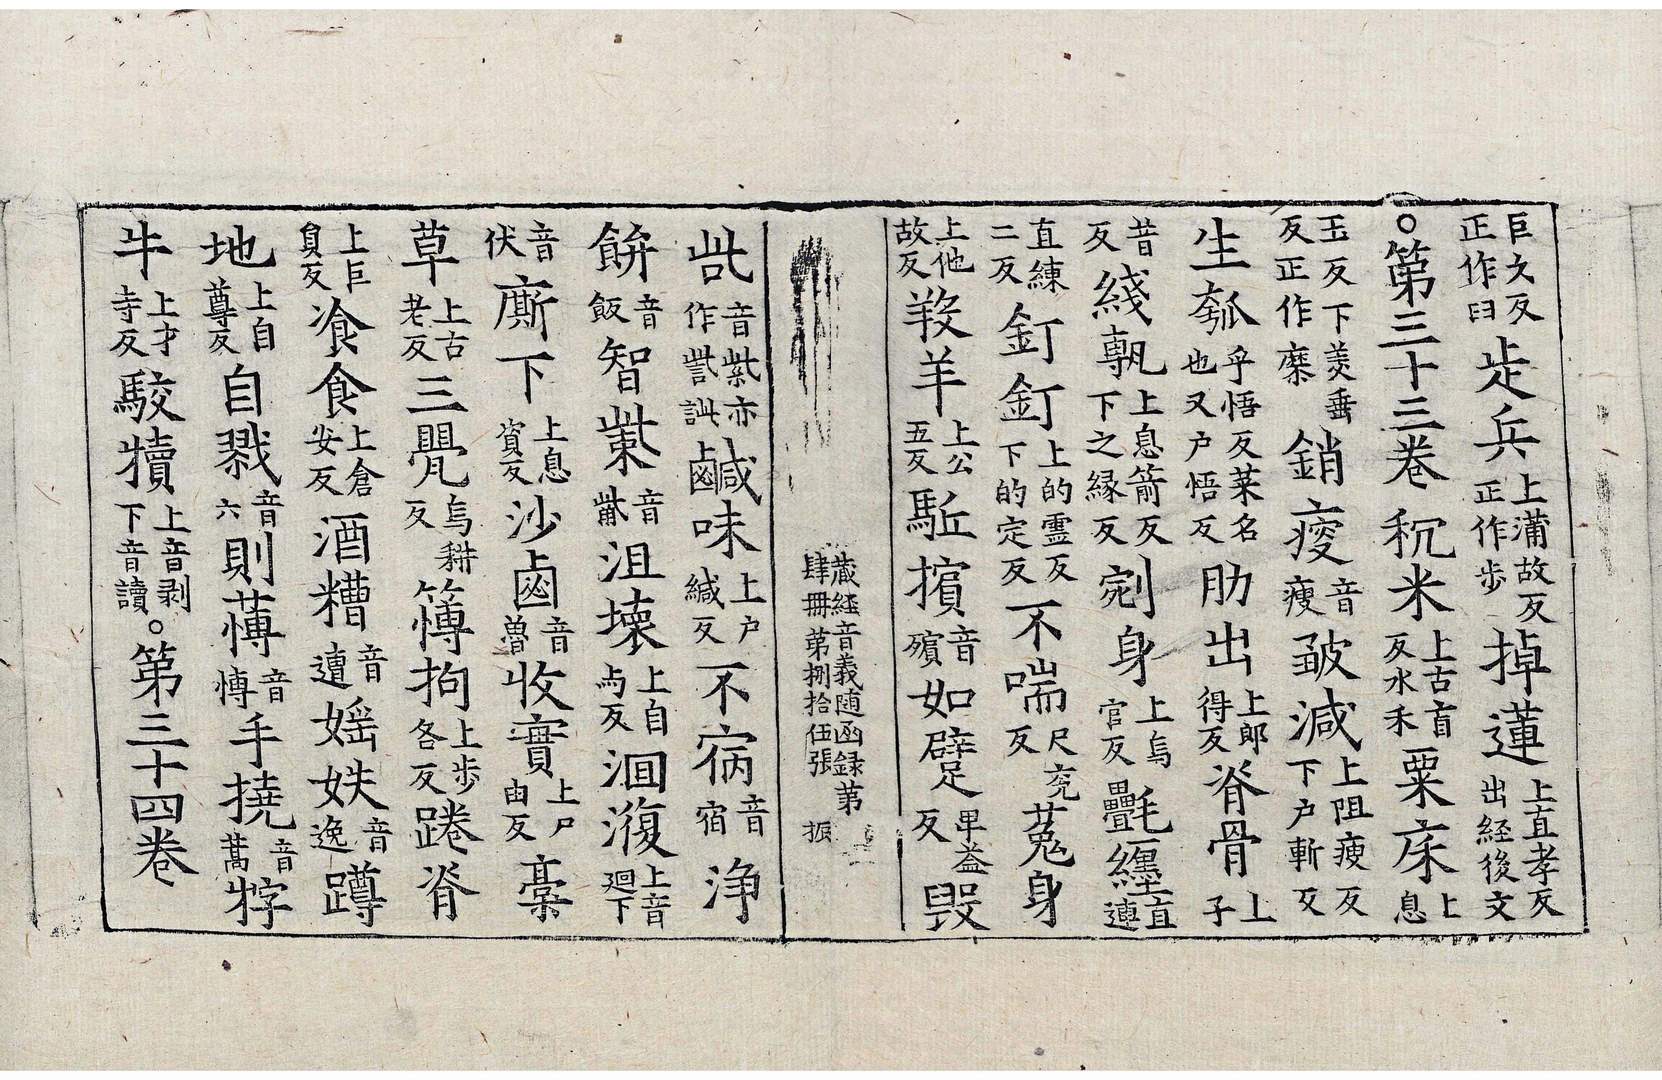 巨久反正作臼歨兵上蒲故反正作步掉蓮上直孝反出経後文
○第三十三巻秔米上古盲反水禾粟床上息
玉反下羙垂反正作糜銷瘦音瘦皺減上阻瘦反下户斬反
生瓠乎悟反菜名也又户悟反肋出上郎得反脊骨上子
昔反綫下之緣反上息箭反剜身上烏官反氎纒直連
直練二反釘釘上的霊反下的定反不喘尺兖反菟身
上他故反羖羊上公五反駈擯音殯如躄卑益反毀
蔵経音義随函録第肆冊第捌拾伍張 振
呰音紫亦作訾訿鹹味上户緘反不㾈音宿浄
餅音飯智音沮壊上自与反洄澓上音廻下
音伏廝下上息賫反沙鹵音魯收實上尸由反藁
草上古老反三甖烏耕反愽拘上步各反踡脊
上巨負反飡食上倉安反酒糟音遭婬妷音逸蹲
地上自尊反自戮音六則薄音愽手撓音蒿牸
牛上才寺反駮犢上音剥下音讀○第三十四巻